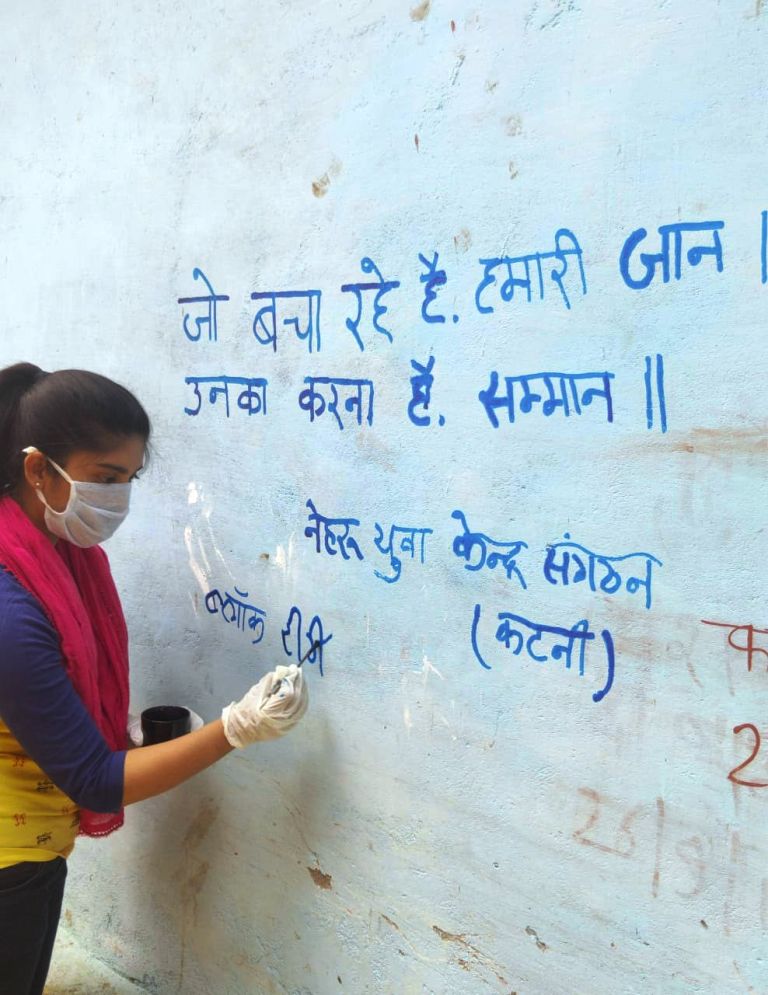 जो बचा रहे है. हमारी जान |
उनका करना है. सम्मान ||
नेहरू युवा केन्द्र संगठन
(कटनी)
ब्लॉक रीठी
क
2
26/9/